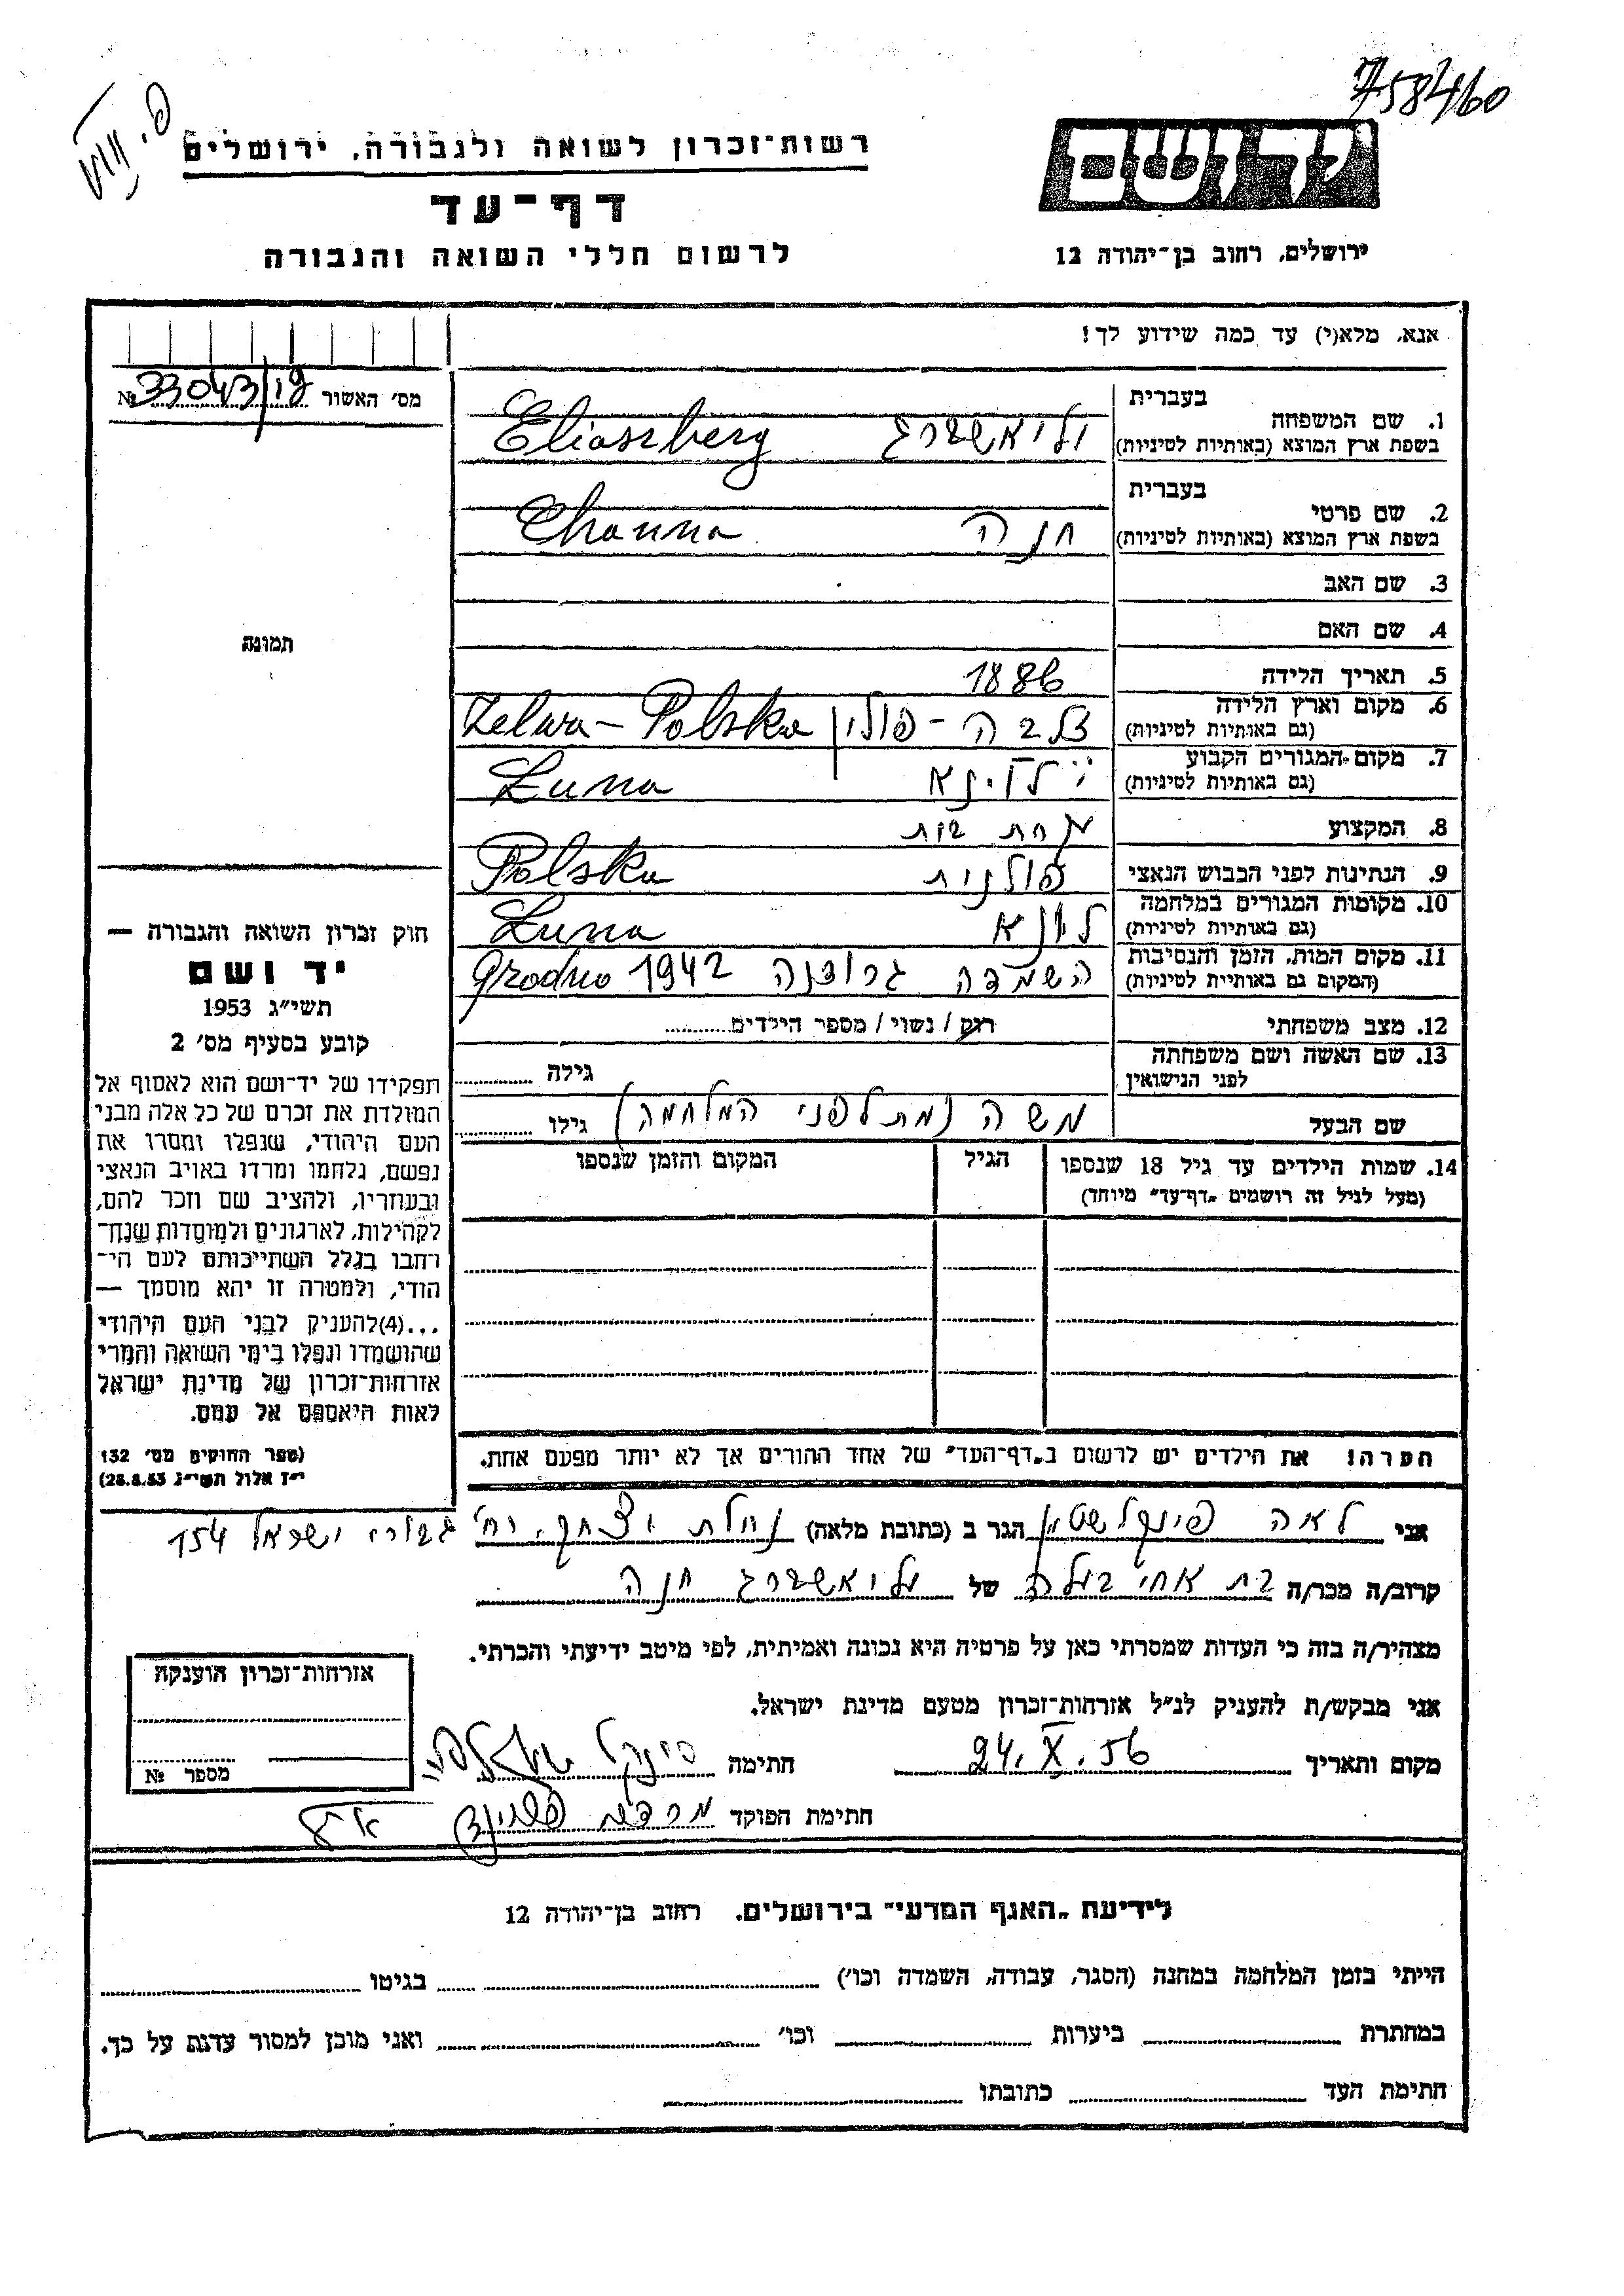 758460
רשות־זכרון לשואה ולגבורה, ירושלים
דף־עד
לרשום חללי השואה והגבורה
יד ושם
ירושלים, רחוב בן־יהודה 12
אנא, מלא(י) עד כמה שידוע לך!
מס׳ האשור № 33043/19
1. שם המשפחה
בעברית
בשפת ארץ המוצא (באותיות לטיניות)
Eliaszberg
2. שם פרטי
בעברית
בשפת ארץ המוצא (באותיות לטיניות)
חנה Channa
3. שם האב
4. שם האם
5. תאריך הלידה 1886
6. מקום וארץ הלידה
(גם באותיות לטיניות)
זלבה - פולין Zelwa - Polska
7. מקום המגורים הקבוע
(גם באותיות לטיניות)
Łunna
8. המקצוע
בית
9. הנתינות לפני הכבוש הנאצי פולנית Polska
10. מקומות המגורים במלחמה
(גם באותיות לטיניות)
לונא Łunna
11. מקום המות, הזמן והנסיבות
(המקום גם באותיית לטיניות)
השמדה גרודנה 1942 Grodno
12. מצב משפחתי רוק / נשוי / מספר הילדים
13. שם האשה ושם משפחתה
לפני הנישואין
גילה
שם הבעל משה (מת לפני המלחמה) גילו
14. שמות הילדים עד גיל 18 שנספו
(מעל לגיל זה רושמים „דף־עד״ מיוחד)
הגיל
המקום והזמן שנספו
תמונה
חוק זכרון השואה והגבורה —
יד ושם
תשי״ג 1953
קובע בסעיף מס׳ 2
תפקידו של יד־ושם הוא לאסוף אל
המולדת את זכרם של כל אלה מבני
העם היהודי, שנפלו ומסרו את
נפשם, נלחמו ומרדו באויב הנאצי
ובעוזריו, ולהציב שם וזכר להם,
לקהילות, לארגונים ולמוסדות שנח־
רחבו בגלל השתייכותם לעם הי־
הודי, ולמטרה זו יהא מוסמך —
...(4)להעניק לבני העם היהודי
שהושמדו ונפלו בימי השואה והמרי
אזרחות־זכרון של מדינת ישראל
לאות היאספם אל עמם.
(ספר החוקים מס׳ 132
י״ז אלול תשי״ג 28.8.53)
הערה! את הילדים יש לרשום ב„דף־העד״ של אחד ההורים אך לא יותר מפעם אחת.
אני לאה פינקלשטיין הגר ב (כתובת מלאה) נחלת יצחק, רח׳ גבורי ישראל 154
קרוב/ה מכר/ה בת אחי בעלה של אליאשברג חנה
מצהיר/ה בזה כי העדות שמסרתי כאן על פרטיה היא נכונה ואמיתית, לפי מיטב ידיעתי והכרתי.
אני מבקש/ת להעניק לנ״ל אזרחות־זכרון מטעם מדינת ישראל.
מקום ותאריך 24.X.56 חתימה
חתימת הפוקד
אזרחות־זכרון הוענקה
מספר №
לידיעת „האגף המדעי״ בירושלים, רחוב בן־יהודה 12
הייתי בזמן המלחמה במחנה (הסגר, עבודה, השמדה וכו׳) בגיטו
במחתרת ביערות וכו׳ ואני מוכן למסור עדות על כך.
חתימת העד כתובתו